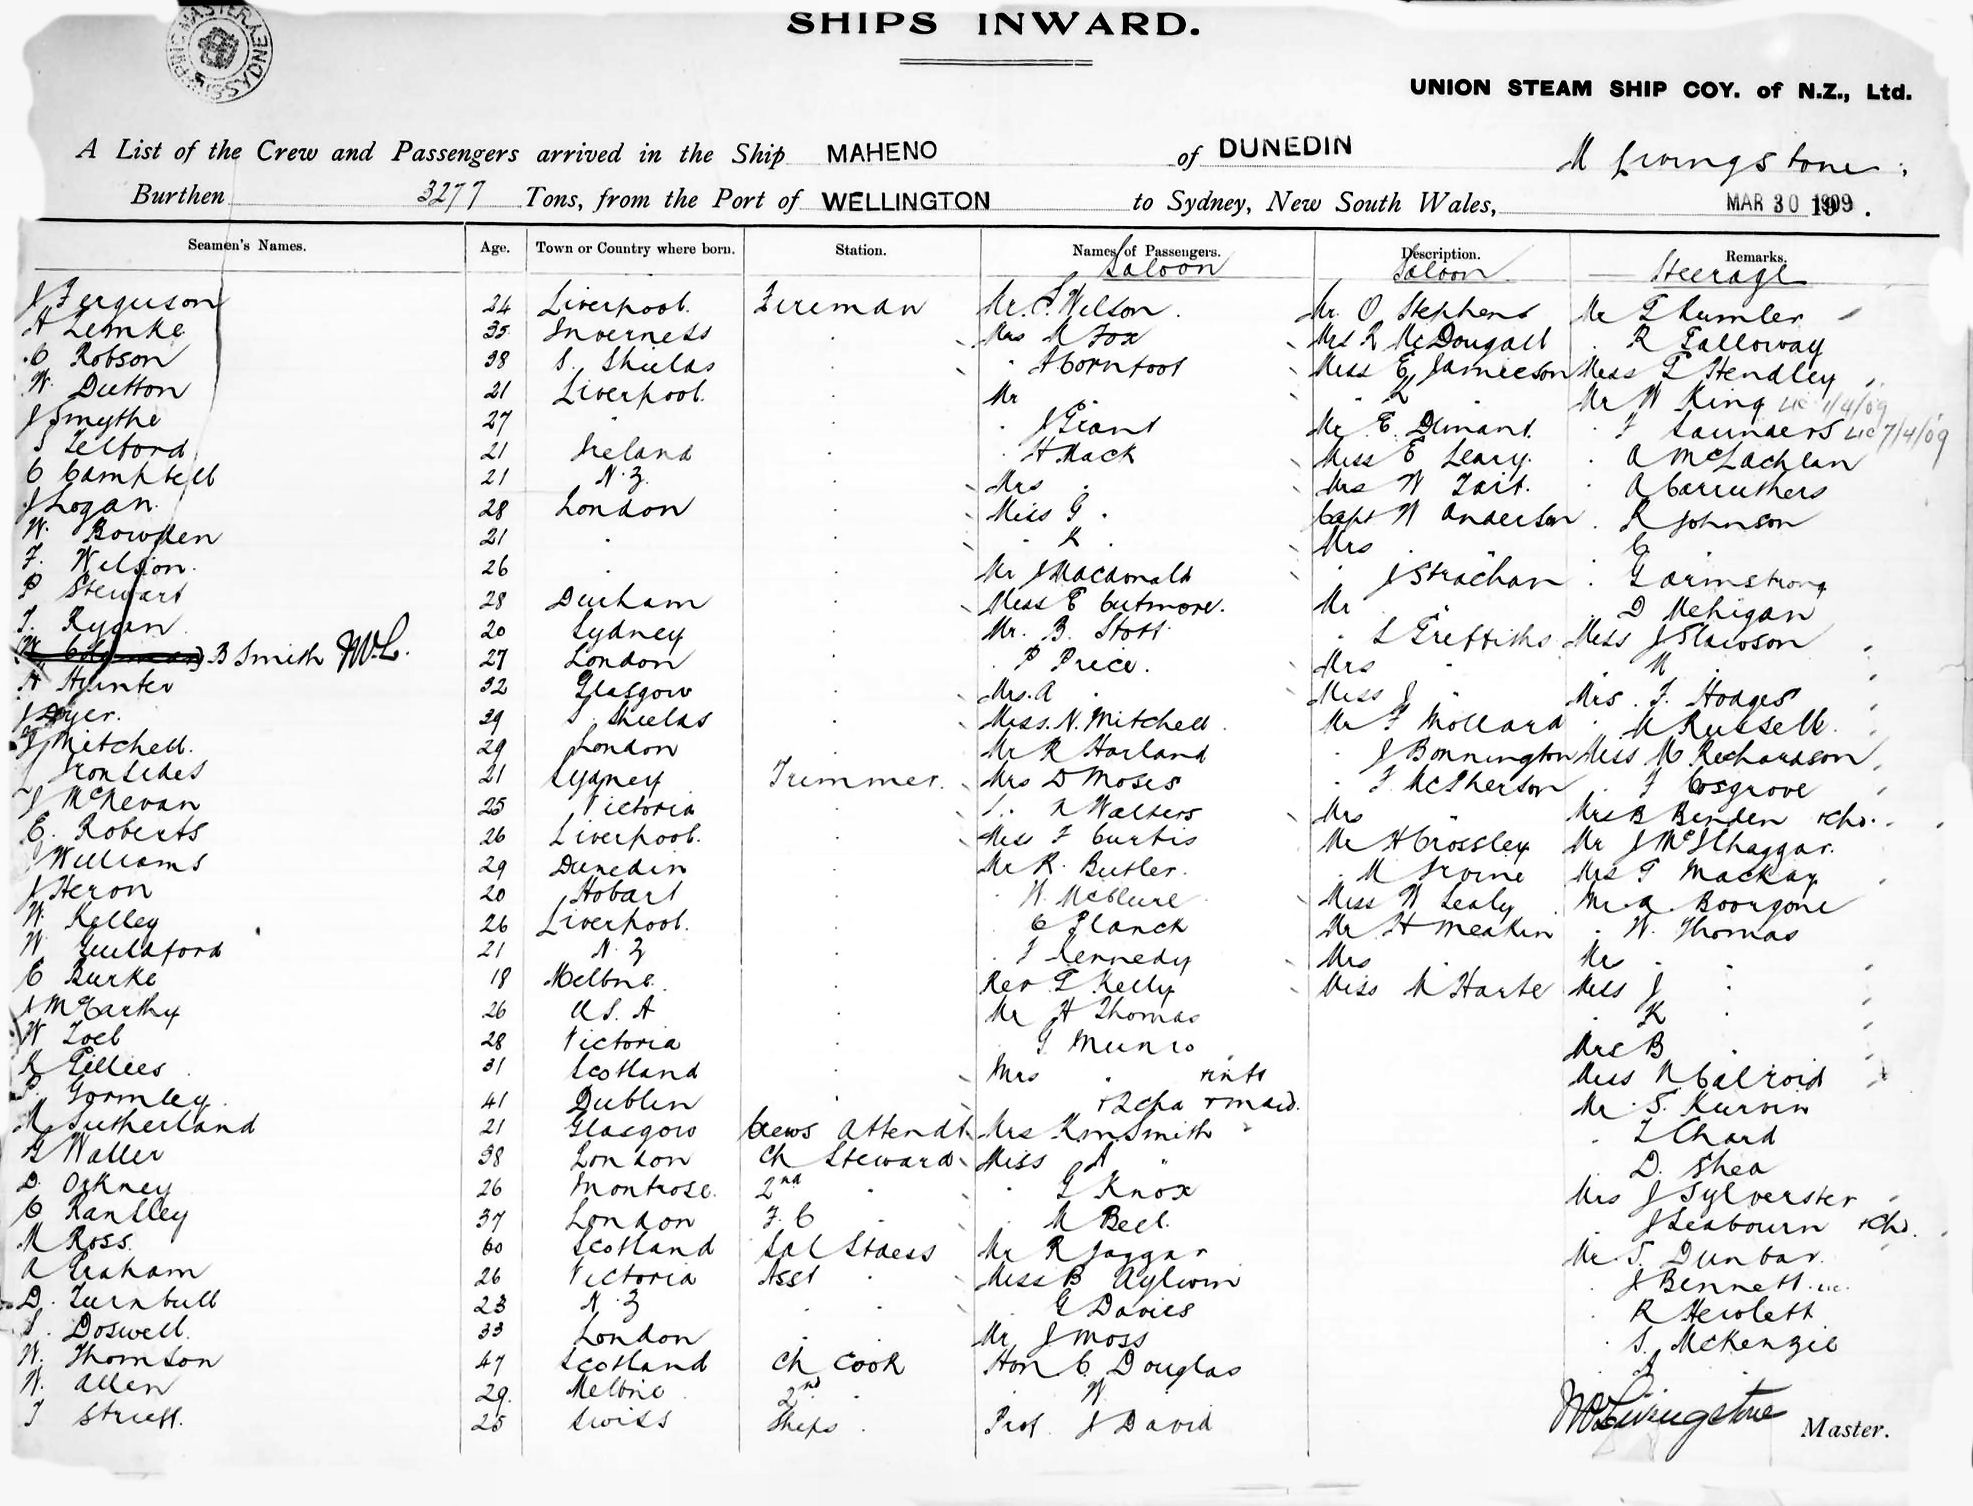 SHIPS INWARD.
UNION STEAM SHIP COY. of N.Z., Ltd.
A List of the Crew and Passengers arrived in the Ship MAHENO of DUNEDIN M Livingstone
Burthen 3277 Tons, from the Port of WELLINGTON to Sydney, New South Wales, MAR 30 1909.
Seamen's Names. Age. Town or Country where born. Station. Names of Passengers. Description. Remarks.
Saloon Saloon Steerage
J Ferguson 24 Liverpool. Fireman Mr. C. Wilson. Mr. O Stephens Mr T Rumler
A Lemke 35 Inverness Mrs M Fox Mrs R McDougall R Galloway
C Robson 38 S. Shields A Cornfoot Miss E Jamieson Miss E Hendley
W. Dutton 21 Liverpool. Mr Mr W King 1/4/09
J Smythe 27 J Grant Mr E. Dimant F Saunders 7/4/09
S Telford 21 Ireland H Mack Miss E Leary. A McLachlan
C Campbell 21 N.Z. Mrs Mrs W Tait. A Carruthers
J Logan. 28 London Miss G Capt W Anderson R Johnson
W. Bowden 21 K Mrs E
F. Wilson. 26 Mr J Macdonald J Strachan G Armstrong
P Stewart 28 Durham Miss E Cutmore. Mr D Mehigan
T. Ryan 20 Sydney Mr. B. Stott S Griffiths Miss J Slawson
B Smith M.L. 27 London P Price. Mrs M
A Hunter 32 Glasgow Mrs. A Miss J Mrs. F. Hodges
J Dyer. 39 S. Shields Miss. N. Mitchell Mr F Mollard M Russell.
F Mitchell. 29 London Mr R Harland J Bonnington Miss M Richardson
J Ironsides 21 Sydney Trimmer. Mrs D Moses F McPherson F Cosgrove
J McKevan 25 Victoria R Walters Mrs Mrs B Benden + chd.
E. Roberts 26 Liverpool. Miss F Curtis Mr H Crossley Mr J McIlhaggar.
J Williams 29 Dunedin Mr R. Butler. M Irvine Mrs G Mackay
J Heron 20 Hobart W. McClure Miss W Sealy Mr A. Bourgone
W. Kelley 26 Liverpool. C Planck Mr H Meakin W. Thomas
W Guildford 21 N.Z F Kennedy Mrs Mr
C Burke 18 Melbne. Rev T Kelly Miss M Harte Miss J
J McCarthy 26 U.S.A Mr H Thomas K
W Toel 28 Victoria G Munro Mrs B
R Gillies 31 Scotland Mrs + inft Miss N Calroid
P. Gormley. 41 Dublin + 2 chd + maid. Mr S. Kurvin
M Sutherland 21 Glasgow Crews Attendt Mrs Kinsmith L Chard
G Waller 38 London Ch Steward Miss A D. Shea
D. Orkney 26 Montrose. 2nd G Knox Mrs J Sylverster
C Kantley 37 London F. C M Bell. J Seabourn + chd.
M Ross. 60 Scotland Sal Stdess Mr R Jaggar Mr S. Dunbar.
A Graham 26 Victoria Asst Miss B Aylwin J Bennett
D. Turnbull 23 N.Z G Davies R Hewlett
S. Doswell. 33 London Mr J Moss S. McKenzie
W. Thomson 47 Scotland Ch Cook Hon C. Douglas A
W. Allen 29. Melbne 2nd W
T Strutt. 25 Swiss Ships Prof J David M Livingstone Master.